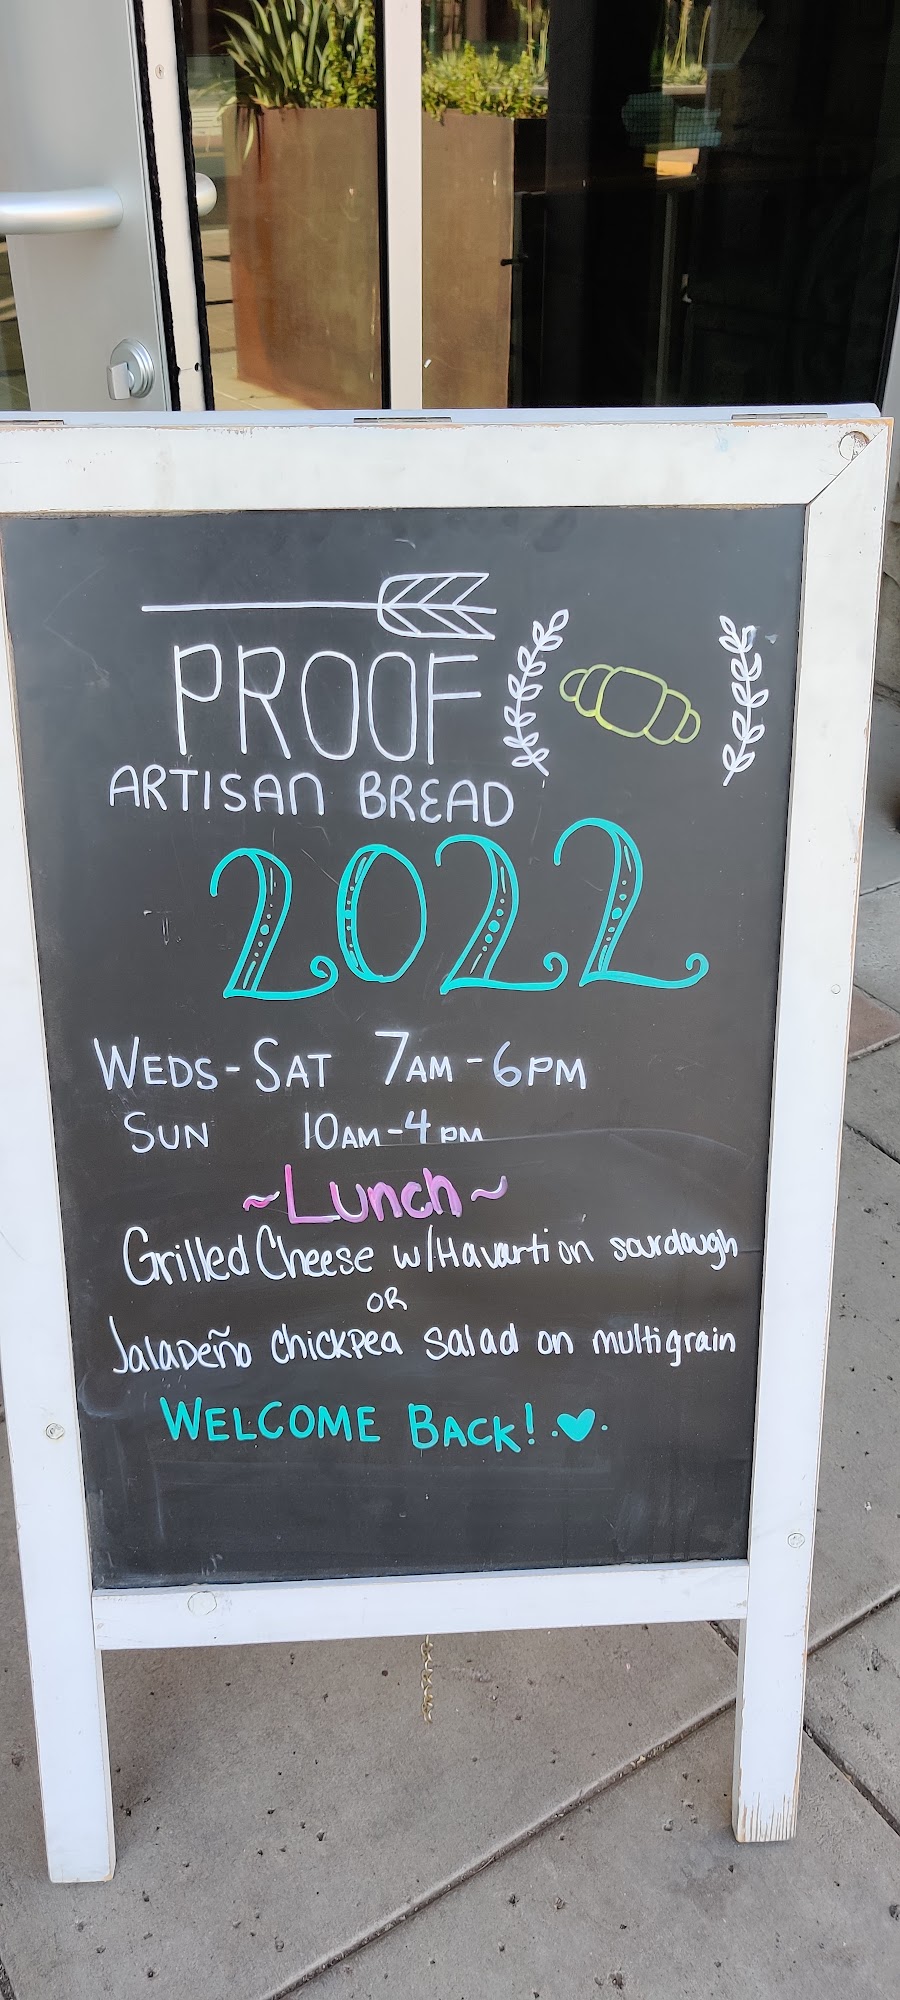 PROOF
ARTISAN BREAD
2022
WEDS-SAT 7AM-6PM
SUN 10AM-4PM
~Lunch~
Grilled Cheese w/Havarti on sourdough
OR
Jalapeño chickpea salad on multigrain
WELCOME BACK!